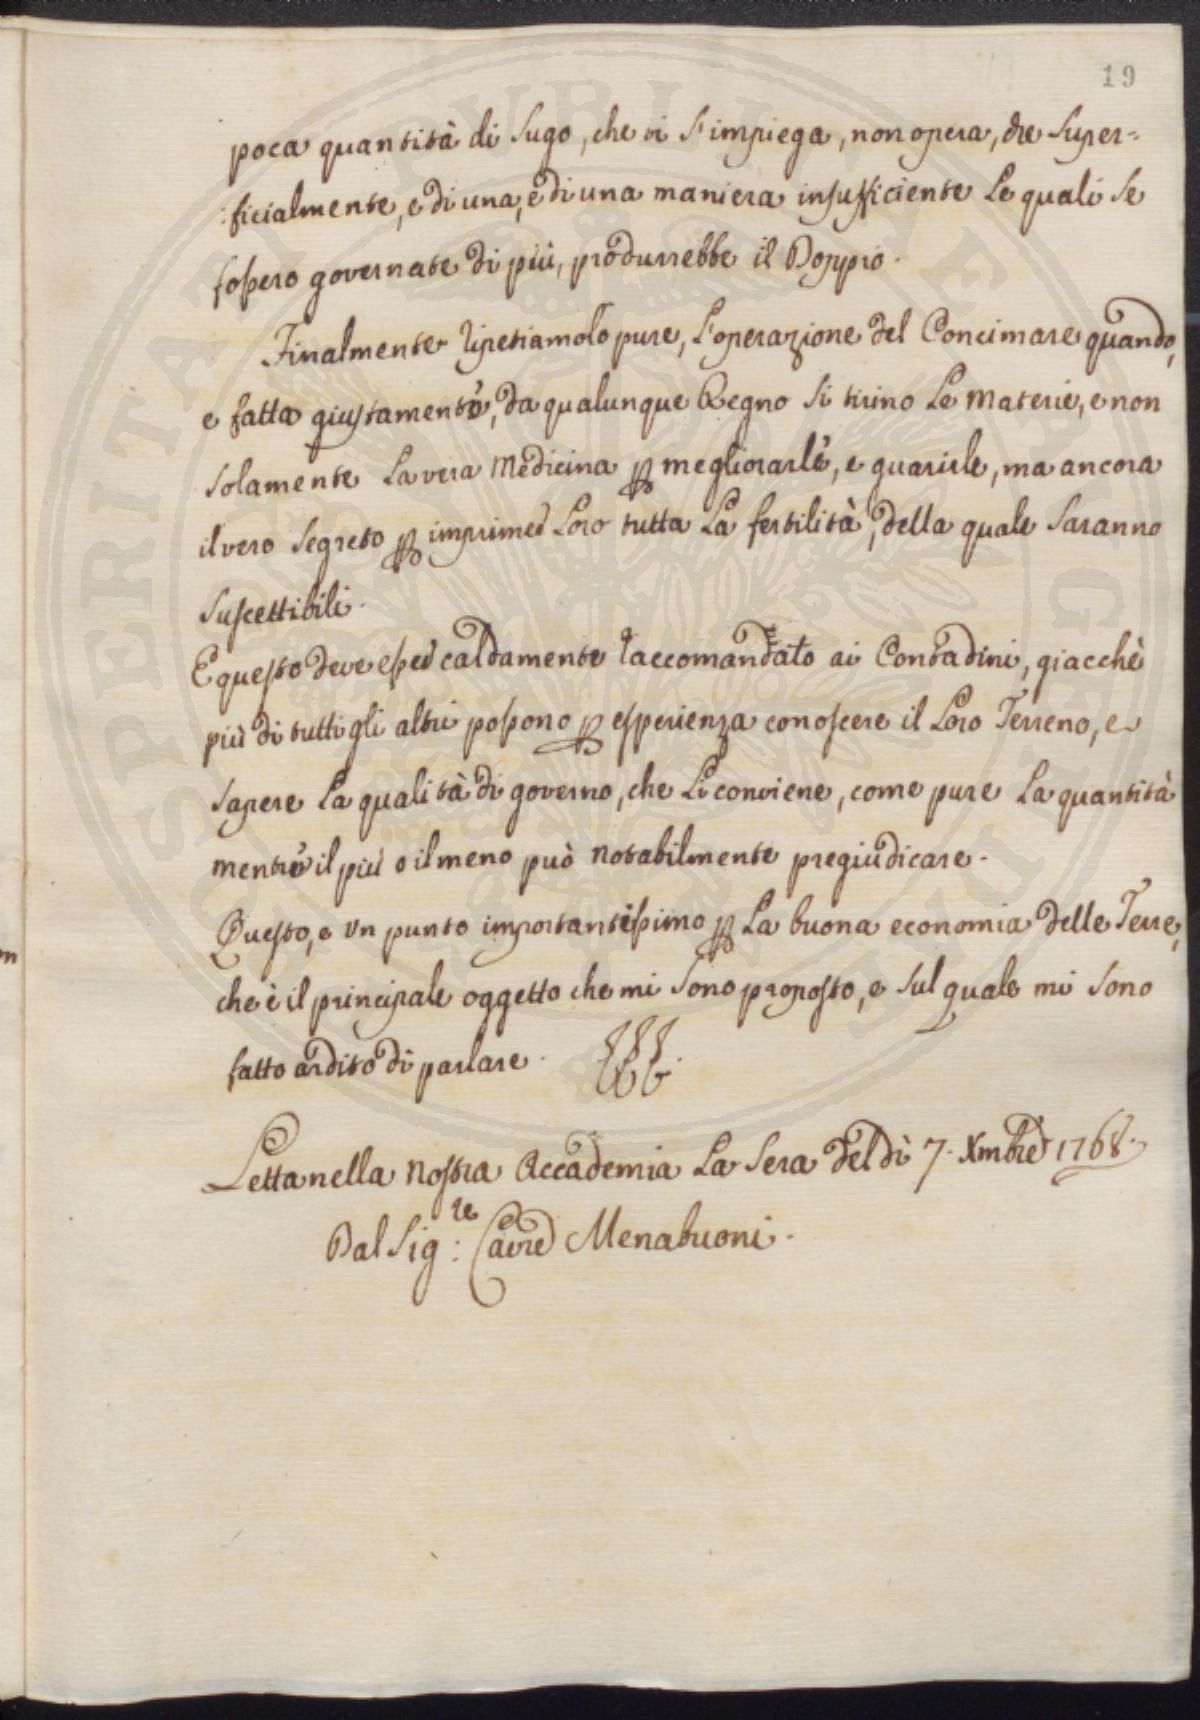 19
poca quantità di sugo, che vi s'impiega, non opera, che super=
:ficialmente, e di una, e di una maniera insufficiente Le quali se
fossero governate di più, produrrebbe il Doppio.
Finalmente ripetiamolo pure, L'operazione del Concimare quando,
e fatta giustamente, da qualunque Regno si tirino Le Materie, e non
solamente La vera Medicina ꝑ megliorarle, e guarirle, ma ancora
il vero segreto ꝑ imprimer Loro tutta La fertilità, della quale saranno
suscettibili.
E questo deve esser caldamente raccomandato ai Contadini, giacchè
più di tutti gli altri possono ꝑ esperienza conoscere il Loro Terreno, e
sapere La qualità di governo, che Li conviene, come pure La quantità
mentre il più o il meno può notabilmente pregiudicare.
Questo, e un punto importantissimo ꝑ La buona economia delle Terre,
che è il principale oggetto che mi sono proposto, e sul quale mi sono
fatto ardito di parlare.
Letta nella nostra Accademia La sera del dì 7. Xmbre 1768.
Dal Sig:re Cavre Menabuoni.
PROSPERITATI PUBLICAE AUGENDAE